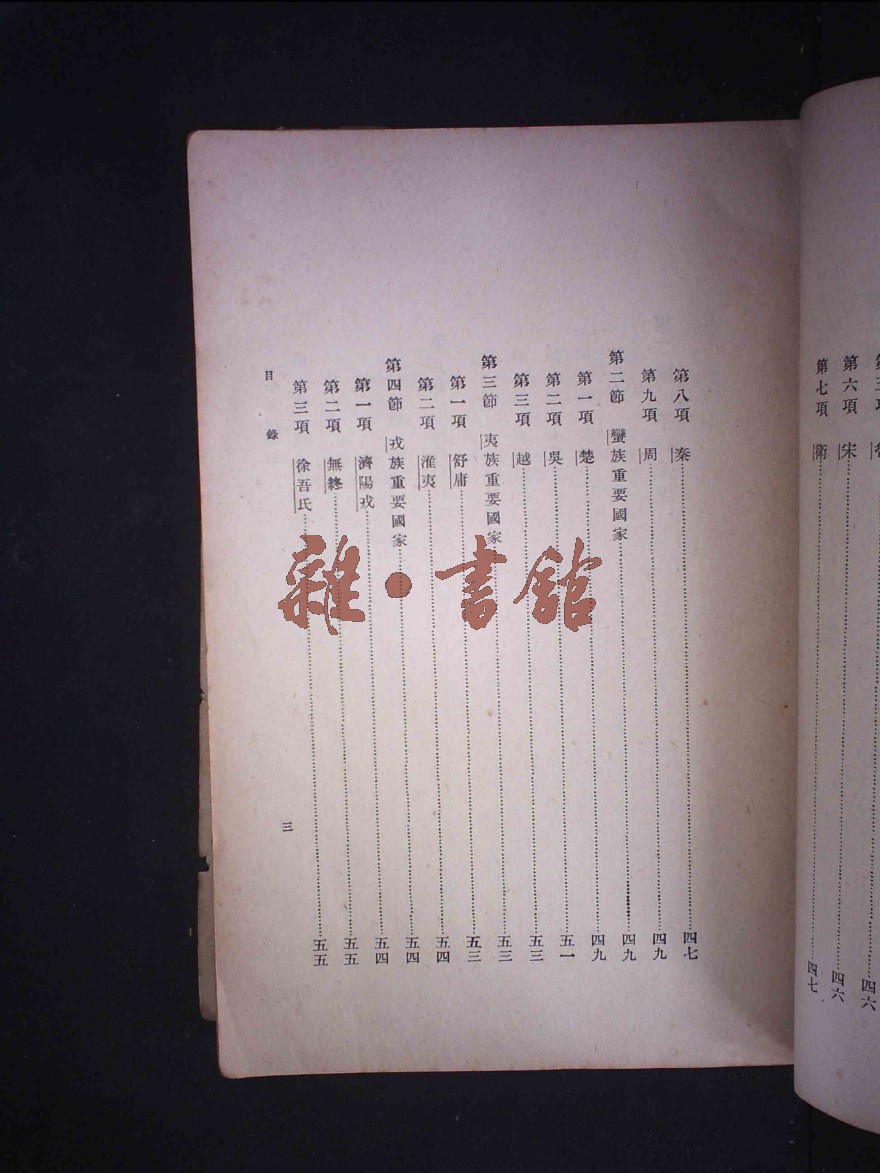 第六項 宋……四六
第七項 衛……四七
第八項 秦……四七
第九項 周……四九
第二節 蠻族重要國家……四九
第一項 楚……四九
第二項 吳……五一
第三項 越……五三
第三節 夷族重要國家……五三
第一項 舒庸……五三
第二項 淮夷……五四
第四節 戎族重要國家……五四
第一項 濟陽戎……五四
第二項 無終……五五
第三項 徐吾氏……五五
目錄
三
雜·書館